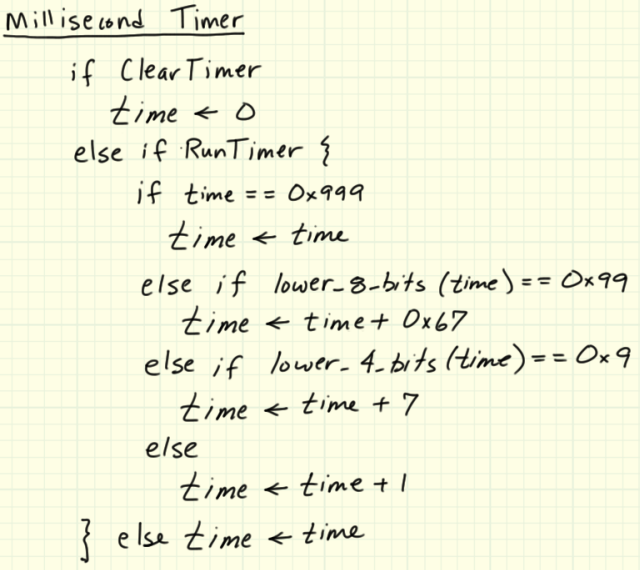 Millisecond Timer
if ClearTimer
time ← 0
else if RunTimer {
if time == 0x999
time ← time
else if lower_8_bits (time) == 0x99
time ← time + 0x67
else if lower_4_bits (time) == 0x9
time ← time + 7
else
time ← time + 1
} else time ← time